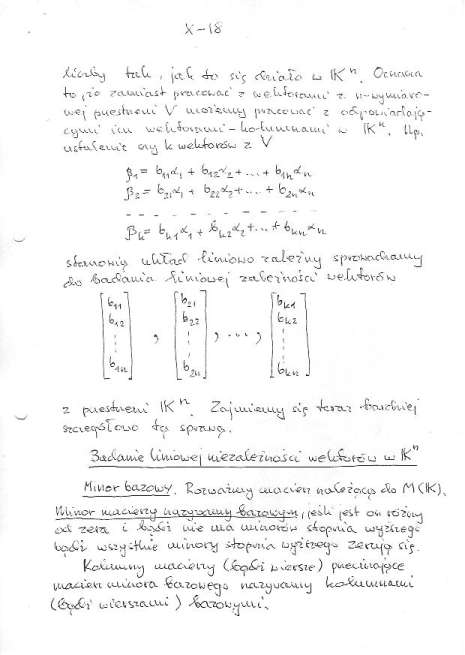 X-18
liczby tak, jak to się działo w IK^n. Oznacza
to, że zamiast pracować z wektorami z n-wymiaro-
wej przestrzeni V możemy pracować z odpowiadają-
cymi im wektorami-kolumnami w IK^n. Np.
ustalenie czy k wektorów z V
β₁ = b₁₁α₁ + b₁₂α₂ + ... + b₁ₙαₙ
β₂ = b₂₁α₁ + b₂₂α₂ + ... + b₂ₙαₙ
- - - - - - - - - - - - - - - - - -
βₖ = bₖ₁α₁ + bₖ₂α₂ + ... + bₖₙαₙ
stanowią układ liniowo zależny sprowadzamy
do badania liniowej zależności wektorów
[b₁₁ b₁₂ ⋮ b₁ₙ], [b₂₁ b₂₂ ⋮ b₂ₙ], ..., [bₖ₁ bₖ₂ ⋮ bₖₙ]
z przestrzeni IK^n. Zajmiemy się teraz bardziej
szczegółowo tą sprawą.
Badanie liniowej niezależności wektorów w IK^n
Minor bazowy. Rozważmy macierz należącą do M(IK).
Minor macierzy nazywamy bazowym, jeśli jest on różny
od zera i bądź nie ma minorów stopnia wyższego
bądź wszystkie minory stopnia wyższego zerują się.
Kolumny macierzy (bądź wiersze) przecinające
macierz minora bazowego nazywamy kolumnami
(bądź wierszami) bazowymi.